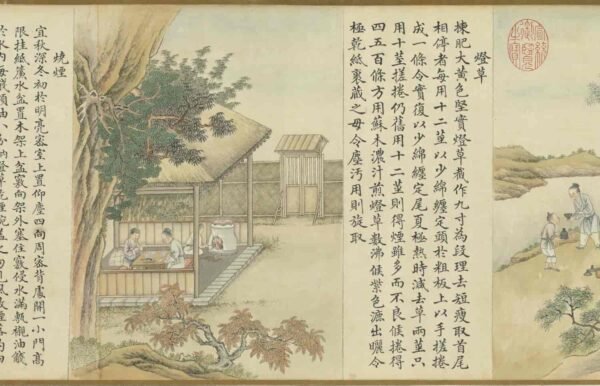 宣統御覽之寶
燈草
揀肥大黃色堅實燈草截作九寸為段理去短瘦取首尾
相停者每用十二莖以少綿纏定頭於粗板上以手搓捲
成一條令實復以少綿纏定尾夏極熱時減去草兩莖只
用十莖搓捲仍舊用十二莖則得煙雖多而不良候捲得
四五百條方用蘇木濃汁煎燈草數沸候紫色漉出曬令
極乾紙裹藏之毋令塵污用則旋取
燒煙
宜秋深冬初於明亮密室上置仰塵四向周密背處開一小門高
限挂紙簾水盆置木架上盆竅向架外塞住竅侵水滿甎襯油醆